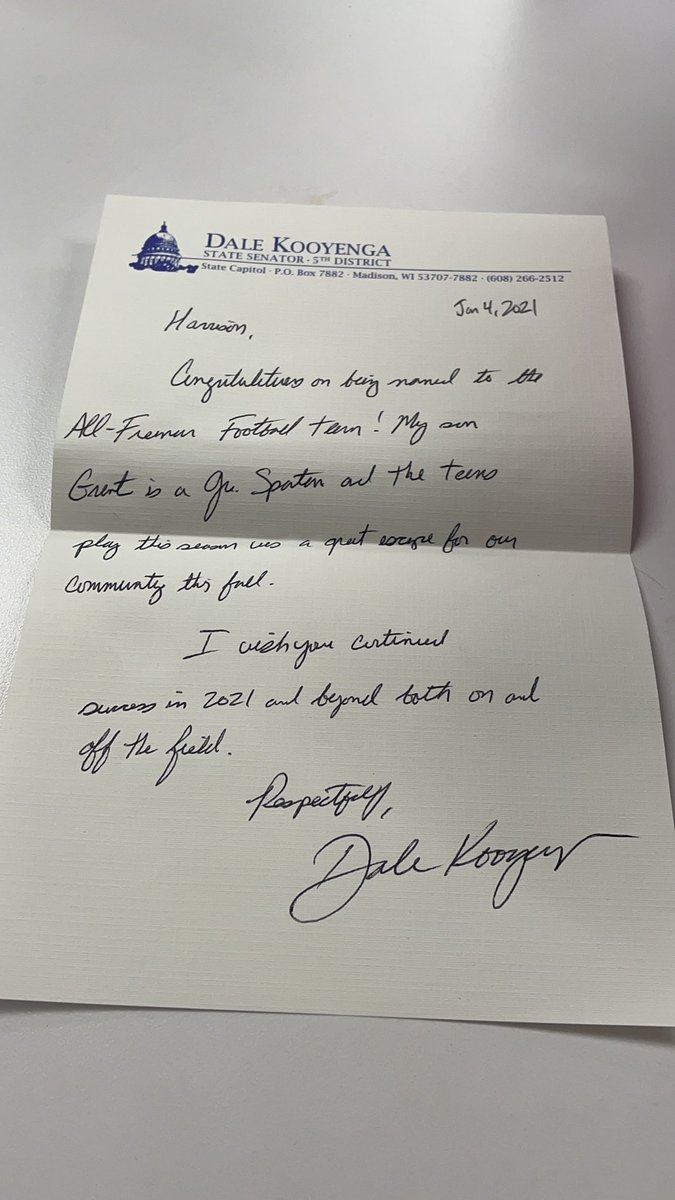 DALE KOOYENGA
STATE SENATOR · 5TH DISTRICT
State Capitol · P.O. Box 7882 · Madison, WI 53707-7882 · (608) 266-2512
Jan 4, 2021
Harrison,
Congratulations on being named to the
All-Freman Football team! My son
Grant is a Jr. Spartan and the teens
play this season was a great escape for our
community this fall.
I wish you continued
success in 2021 and beyond both on and
off the field.
Respectfully,
Dale Kooyenga